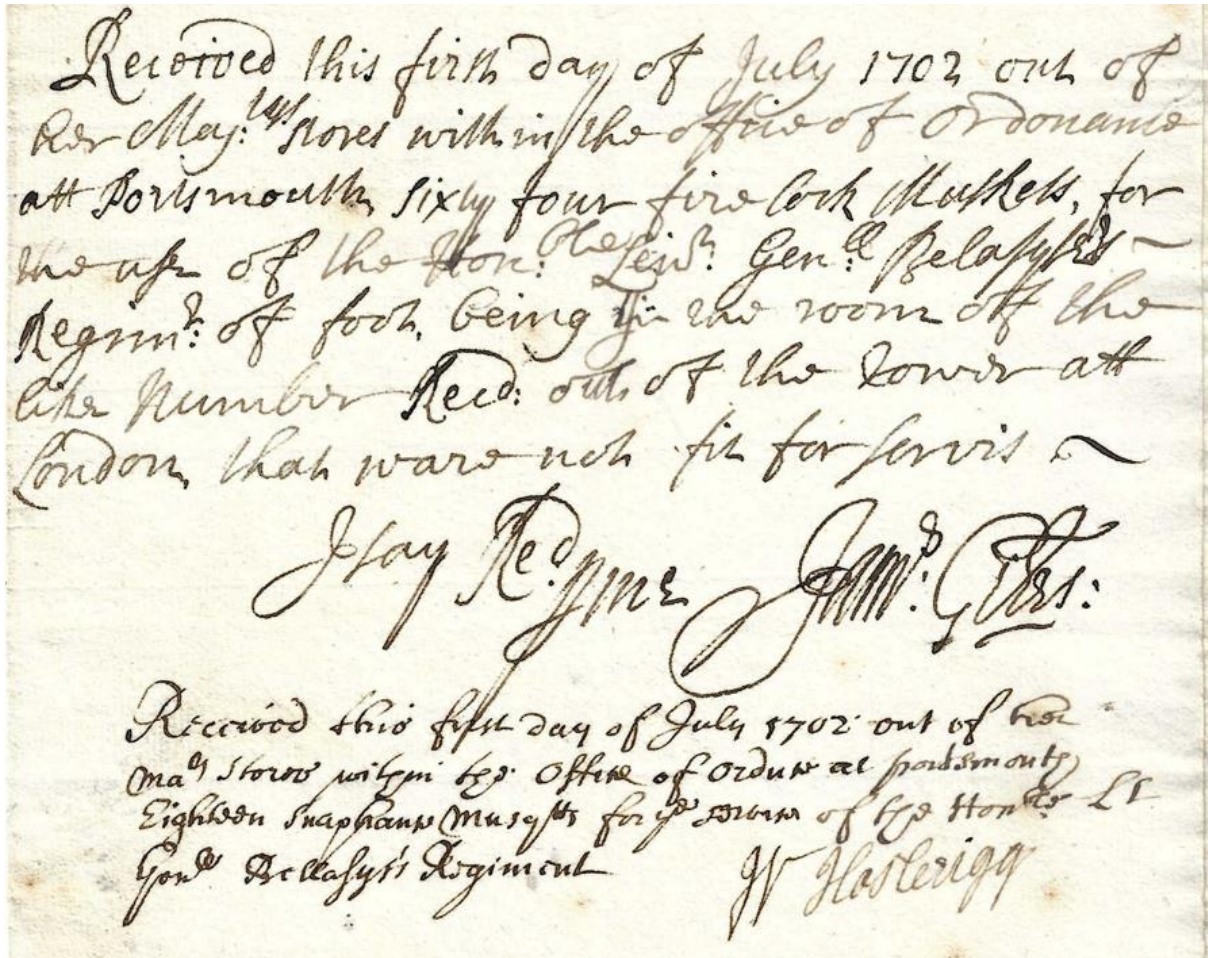 Received this first day of July 1702 out of
her Maj:tys Stores within the office of Ordonance
att Portsmouth sixty four fire lock Muskets, for
the use of the Hon:ble Leiut: Gen:ll Belasyse's
Regimt: of foot, being in the room off the
like Number Recd: out of the Tower att
London, that ware not fit for servis
I say Recd. p me
Received this first day of July 1702 out of her
Matys Stores within the Office of Ordnce at portsmouth
Eighteen Snaphance Musqtts for ye service of the Honble Lt
Genll Bellasys's Regiment
W Haslerigg